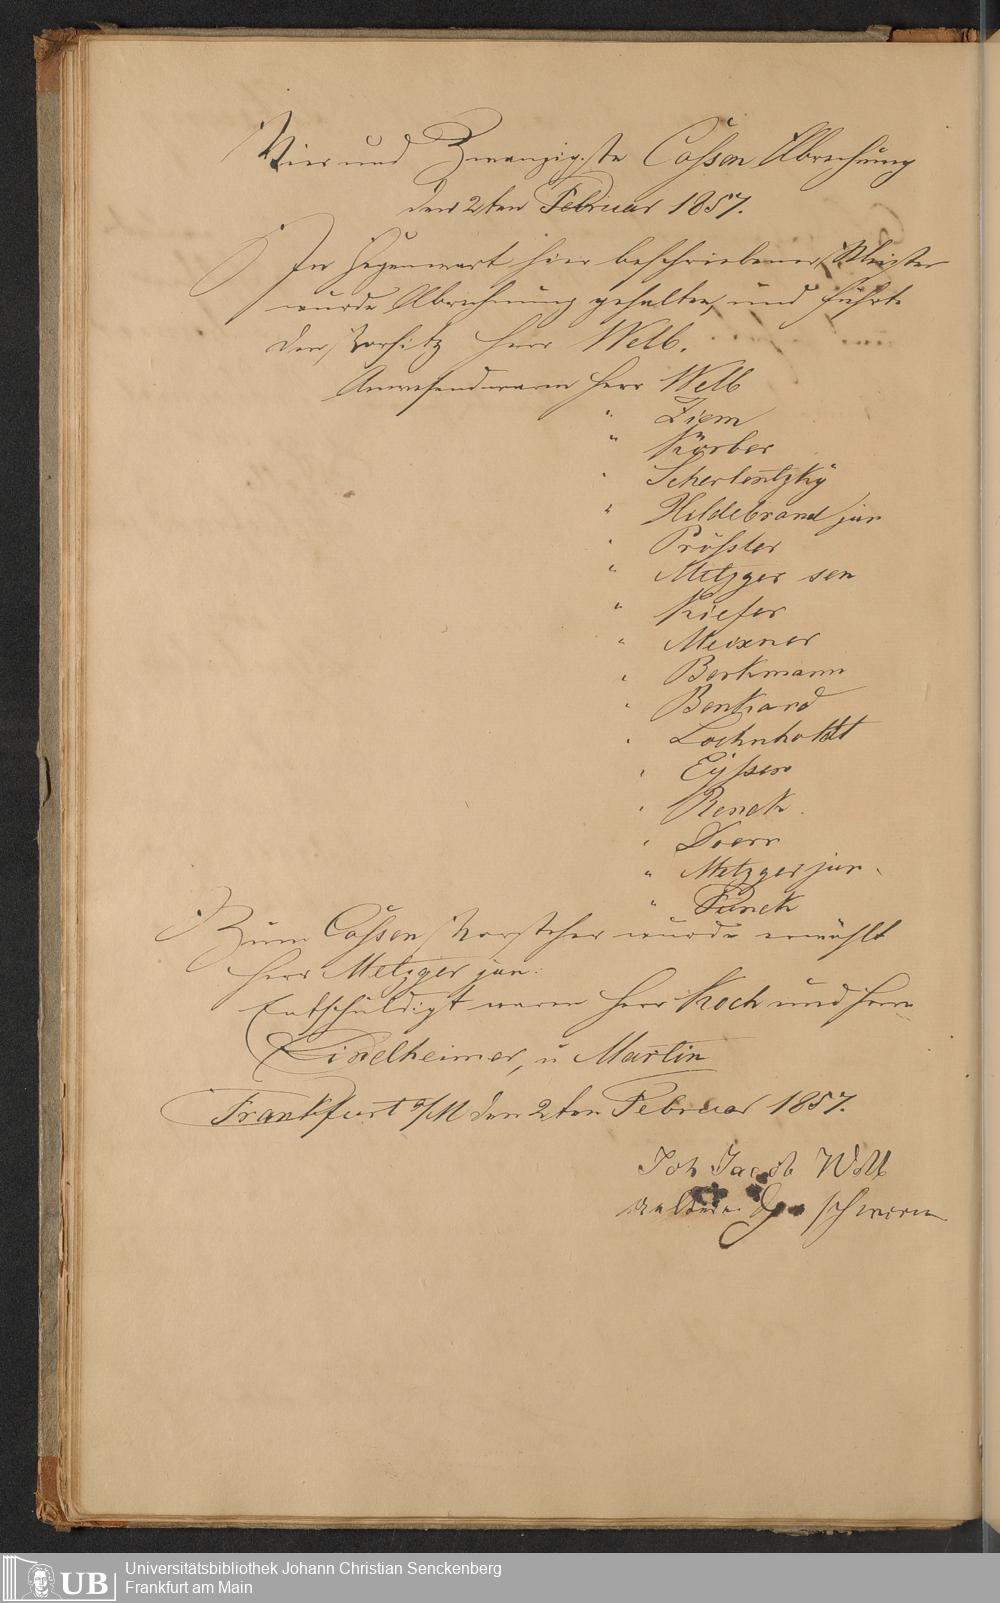 Vier und Zwanzigste Cassen Abrechnung
den 2ten Februar 1857.
In Gegenwart hier beschriebener Meister
wurde Abrechnung gehalten, und führte
den Vorsitz Herr Welb.
Anwesend waren Herr Welb
" Ziem
" Körber
" Scherlentzky
" Hildebrand jun
" Prößler
" Metzger sen
" Kiefer
" Meixner
" Berkmann
" Benkard
" Lochnholdt
" Eyssen
" Renck.
" Doerr
" Metzger jun.
" Funck
Zum Cassen Vorsteher wurde erwählt
Herr Metzger jun:
Entschuldigt waren Herr Koch und Herrn
Dindelheimer, u Martin
Frankfurt a/M den 2ten Februar 1857.
Joh Jacob Welb
Geschworn
Universitätsbibliothek Johann Christian Senckenberg
Frankfurt am Main
UB